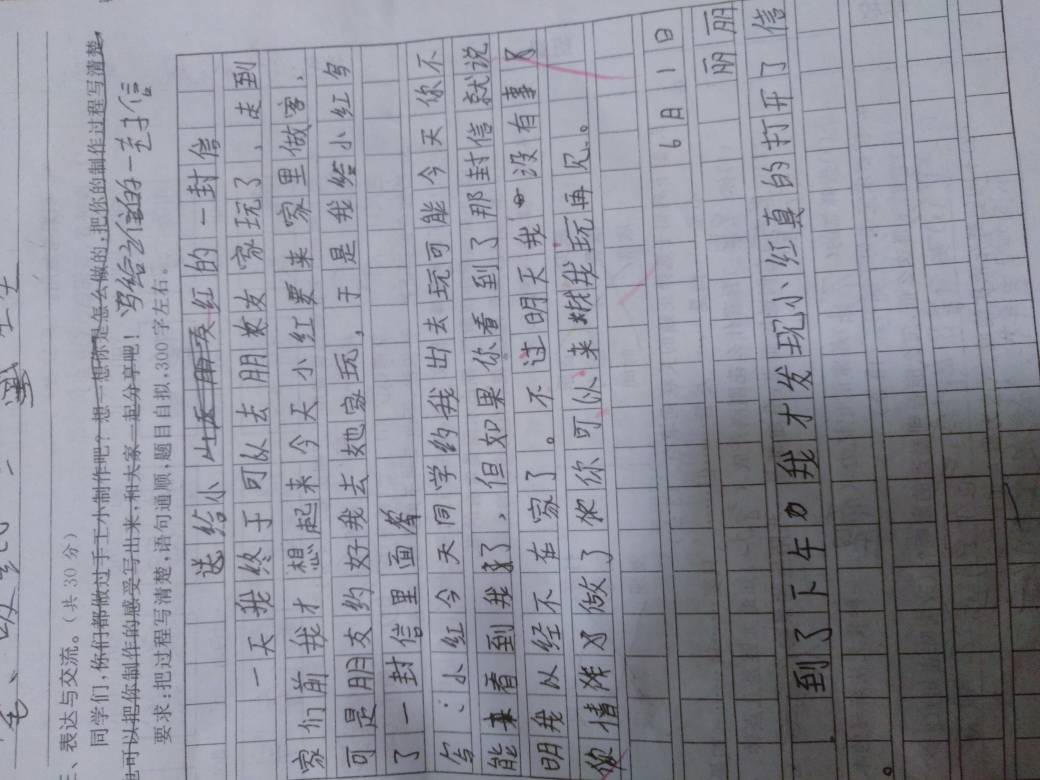 三、表达与交流。(共30分)
同学们,你们都做过手工小制作吧?想一想你是怎么做的,把你的制作过程写清楚,
也可以把你制作的感受写出来,和大家一起分享吧! 写给的一封信
要求:把过程写清楚,语句通顺,题目自拟,300字左右。
送给小红的一封信
一天我终于可以去朋友家玩了、走到
家们前我才想起来今天小红要来家里做客、
可是朋友约好我去她家玩,于是我给小红写
了一封信里面
:小红今天同学约我出去玩可能今天你不
能来看到我了,但如果你看到了那封信就说
明我以经不在家了。不过明天我没有事
做了你可以来找我玩再见。
6月1日
丽丽
到了下午我才发现小红真的打开了信
。